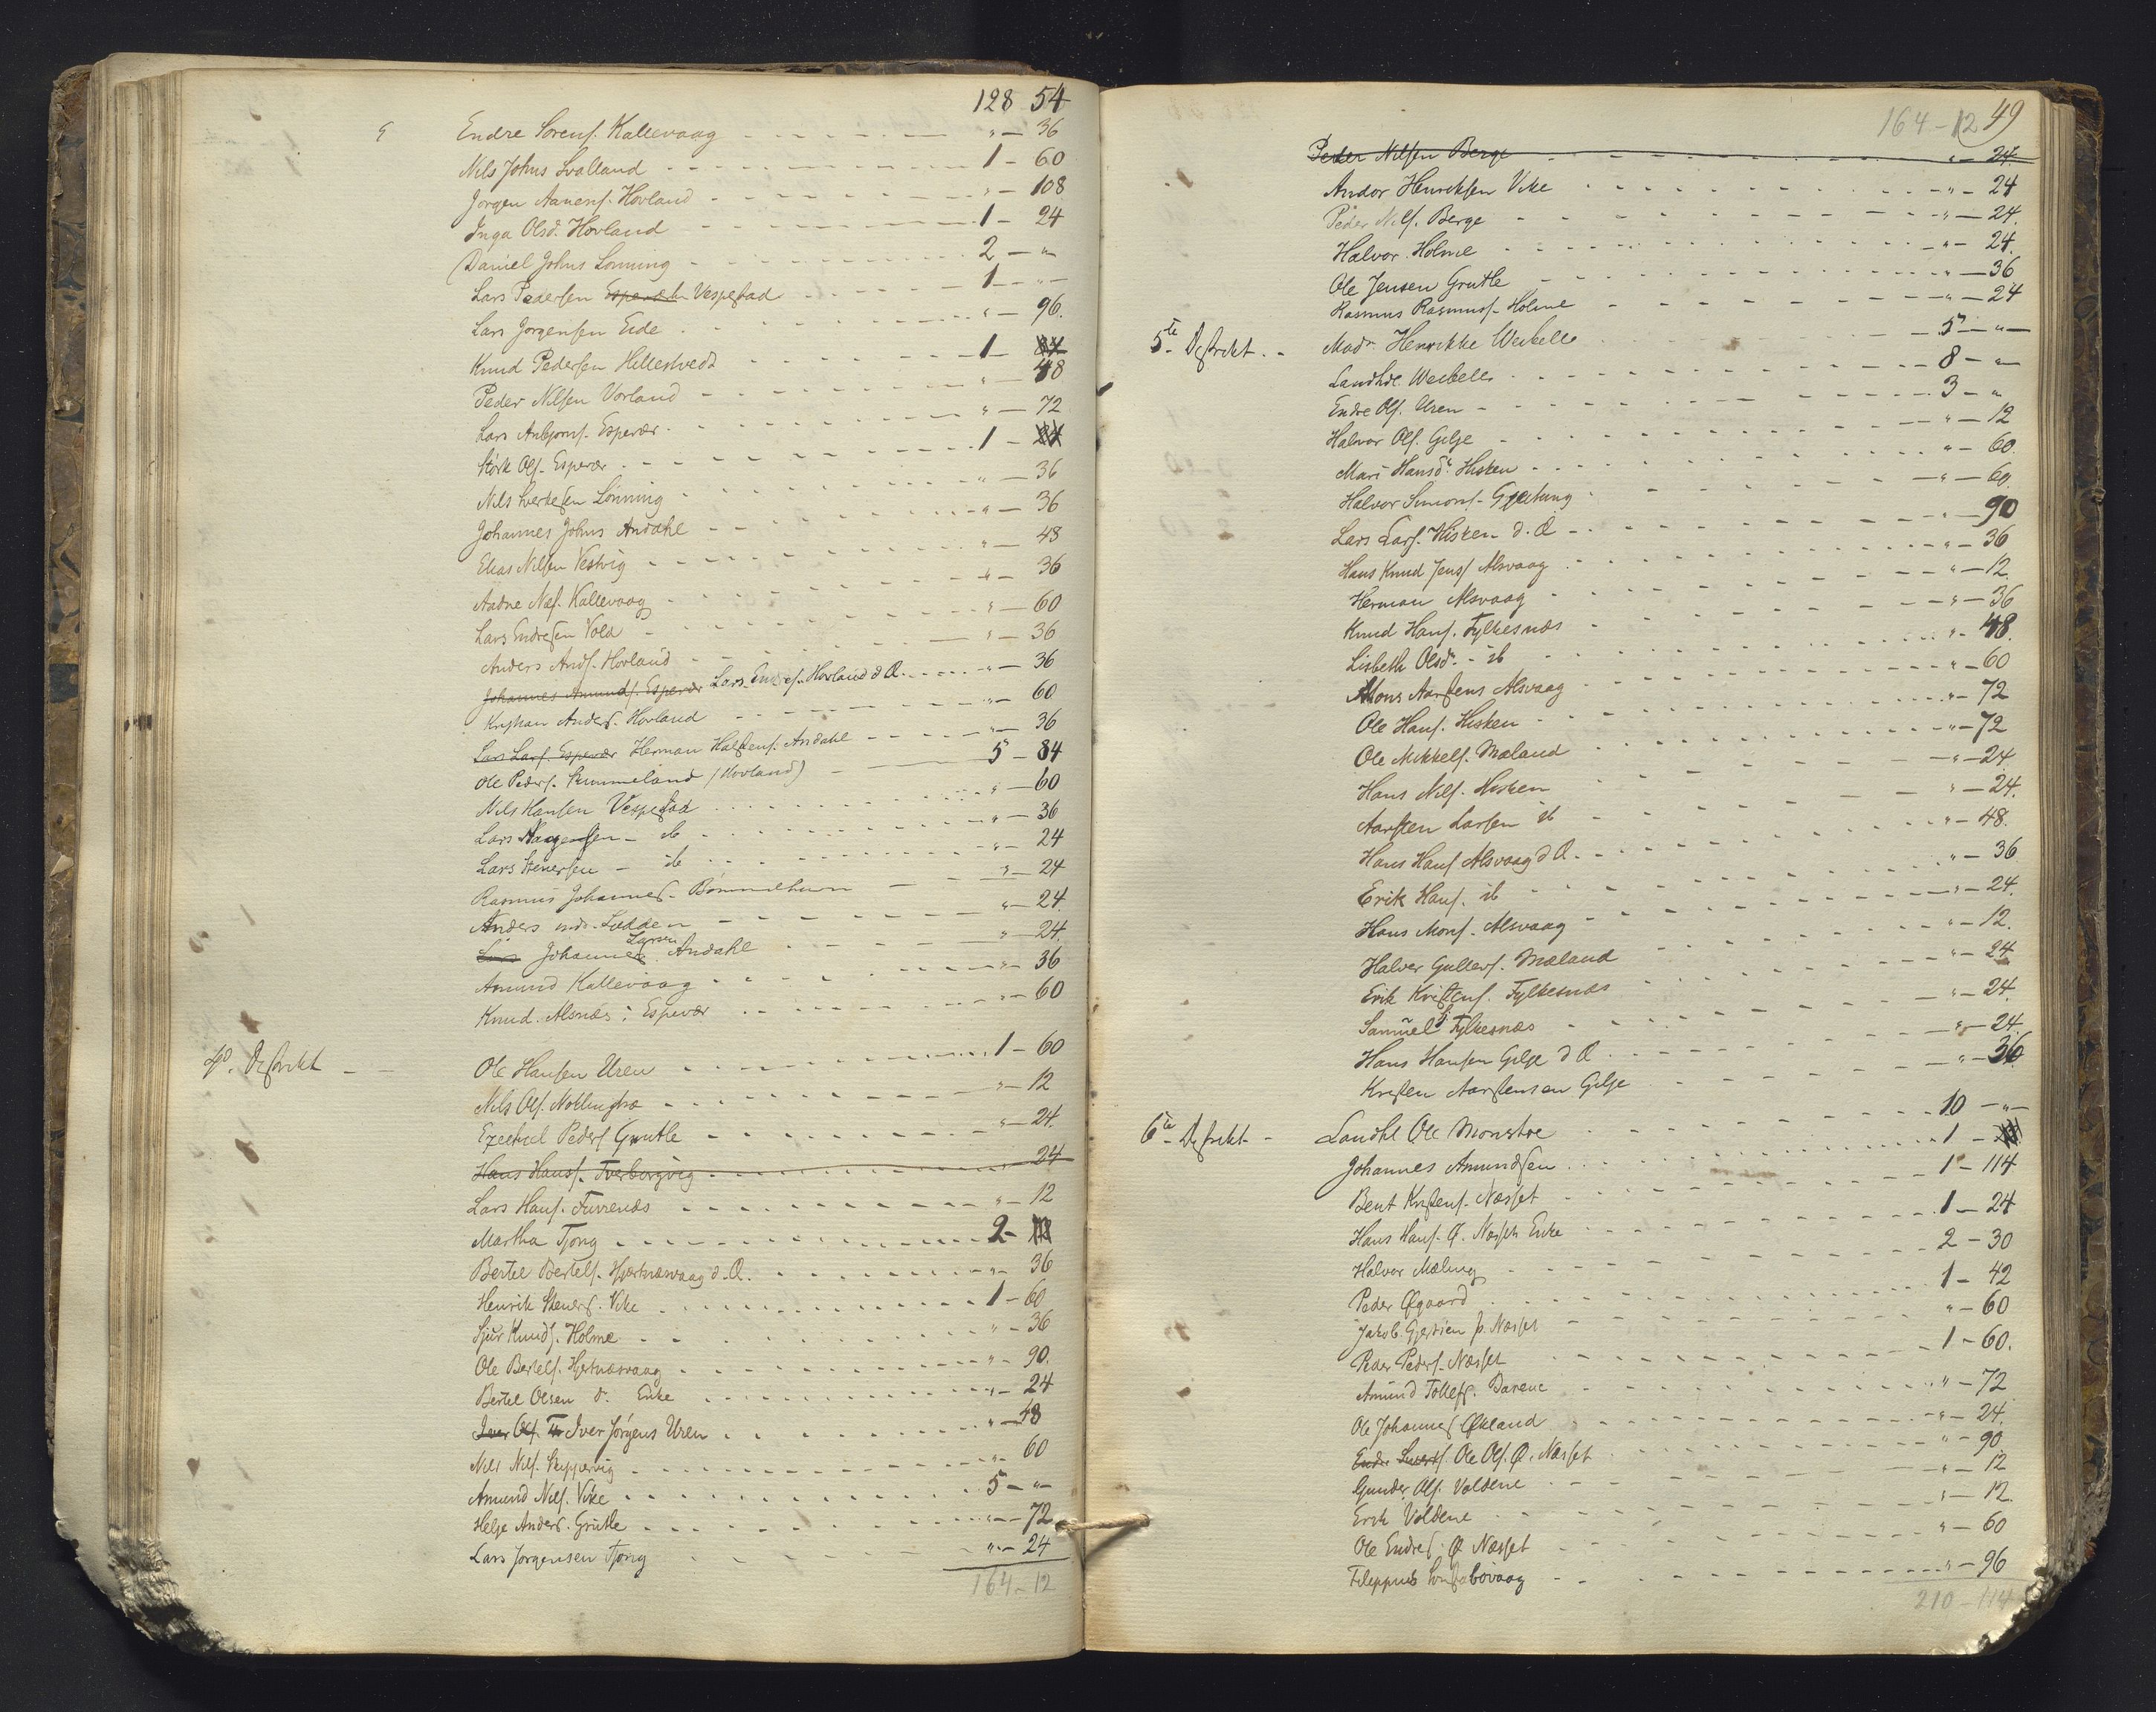 128 54
Endre Sørens. Kallevaag " — 36
Nils Johns Svalland 1 - 60
Jørgen Aanens. Hovland " - 108
Inga Olsd. Hovland 1 - 24
Daniel Johns Lønning 2 — "
Lars Pedersen Espevær Vespestad 1 — "
Lars Jørgensen Eide " — 96.
Knud Pedersen Hillestvedt 1
Peder Nilsen Vorland " — 48
Lars Anbjørns. Espevær " — 72
Størk Ols. Espevær 1 —
Nils Lønning " — 36
Johannes Johns Andahl " — 36
Elias Nilsen Vestvig " — 48
Aadne Nils. Kallevaag " — 36
Lars Endresen Vold " — 60
Anders Ands. Hovland " — 36
Johannes Amunds. Espevær Lars Endres. Hovland d Æ. " — 36
Anders. Hovland " — 60
Lars Lars. Espevær Herman Halstens. Andahl " — 36
Ole Peders. (Hovland) 5 - 84
Nils Hansen Vespestad " — 60
Lars — ib " — 36
Lars Stenersen — ib " — 24
Rasmus Johannes. Bømmelhavn " — 24
Anders " — 24
Lars Johannes Larsen Andahl " — 24.
Amund Kallevaag " — 36
Knud Alsnæs i Espevær " — 60
4d. Distrikt — Ole Hansen Uren 1 - 60
Nils Ols. " — 12
Ezechiel Peders Grutle " — 24.
Hans Hanss. Tverborgvig 24
Lars Hans. Furrenæs " — 12
Martha Tjong 2 -
Bertel Bertels. Hjertnæsvaag d. Æ. " — 36
Henrik Steners. Vike 1 - 60
Sjur Knuds. Holme " - 36
Ole Bertels. Hjertnæsvaag " - 90.
Bertel Olsen d. Enke " - 24
Iver Ols. Iver Jørgens Uren " — 48
Nils Nils. " — 60
Amund Nils. Vike 5 — "
Helge Anders. Grutle " — 72
Lars Jørgensen Tjong " — 24
164 - 12
164 - 12 49
Peder Nilsen Berge " — 24
Andor Henriksen Vike " — 24
Peder Nils. Berge " — 24.
Halvor Holme " — 24.
Ole Jensen Grutle " — 36
Rasmus Rasmuss. Holme " — 24
5te Distrikt. - Madm. Henrikke Weibelle 5 — "
Landhdl. Weibelle 8 — "
Endre Ols. Uren 3 — "
Halvor Ols. Gilje " — 12
Mari Hansdr. Hisken " — 60.
Halvor Simons. Gjeitung " — 60.
Lars Lars. Hisken d. Æ " — 90
Hans Knud Jens. Alsvaag " — 36
Herman Alsvaag " — 12
Knud Hans. Fylkesnæs " — 36
Lisbeth Olsdr. - ib " — 48.
Mons Aarstens Alsvaag " — 60
Ole Hans. Hisken " — 72
Ole Mikkels. Mæland " — 72
Hans Nils. Hisken " — 24
Aarsten Larsen ib " — 24.
Hans Hans Alsvaag d Æ. " — 48.
Erik Hans. ib " — 36
Hans Mons. Alsvaag " — 24.
Halvor Gullers. Mæland " — 12.
Erik Kristens. Fylkesnæs " — 24
Samuel Fylkesnæs " — 24.
Hans Hansen Gilje d Æ " — 24.
Kristen Aarstensen Gilje " — 36
6te Distrikt - Landhl Ole Monstre 10 — "
Johannes Amundsen 1 -
Bent Kristens. Næsset 1 - 114
Hans Hans. Ø. Næsset Enke 1 - 24
Halvor Mæling 2 - 30
Peder Øgaard 1 - 42
Jakob p. Næsset " — 60
Peder Peders. Næsset 1 - 60.
Amund Tollefs. " — 72
Ole Johannes Økland " — 24.
Endre Ole Ols. Ø. Næsset " — 90
Gunder Ols. Voldene " — 12
Erik Voldene " — 12.
Ole Endres. Ø Næsset " — 60
Filippus " — 96
210 - 114